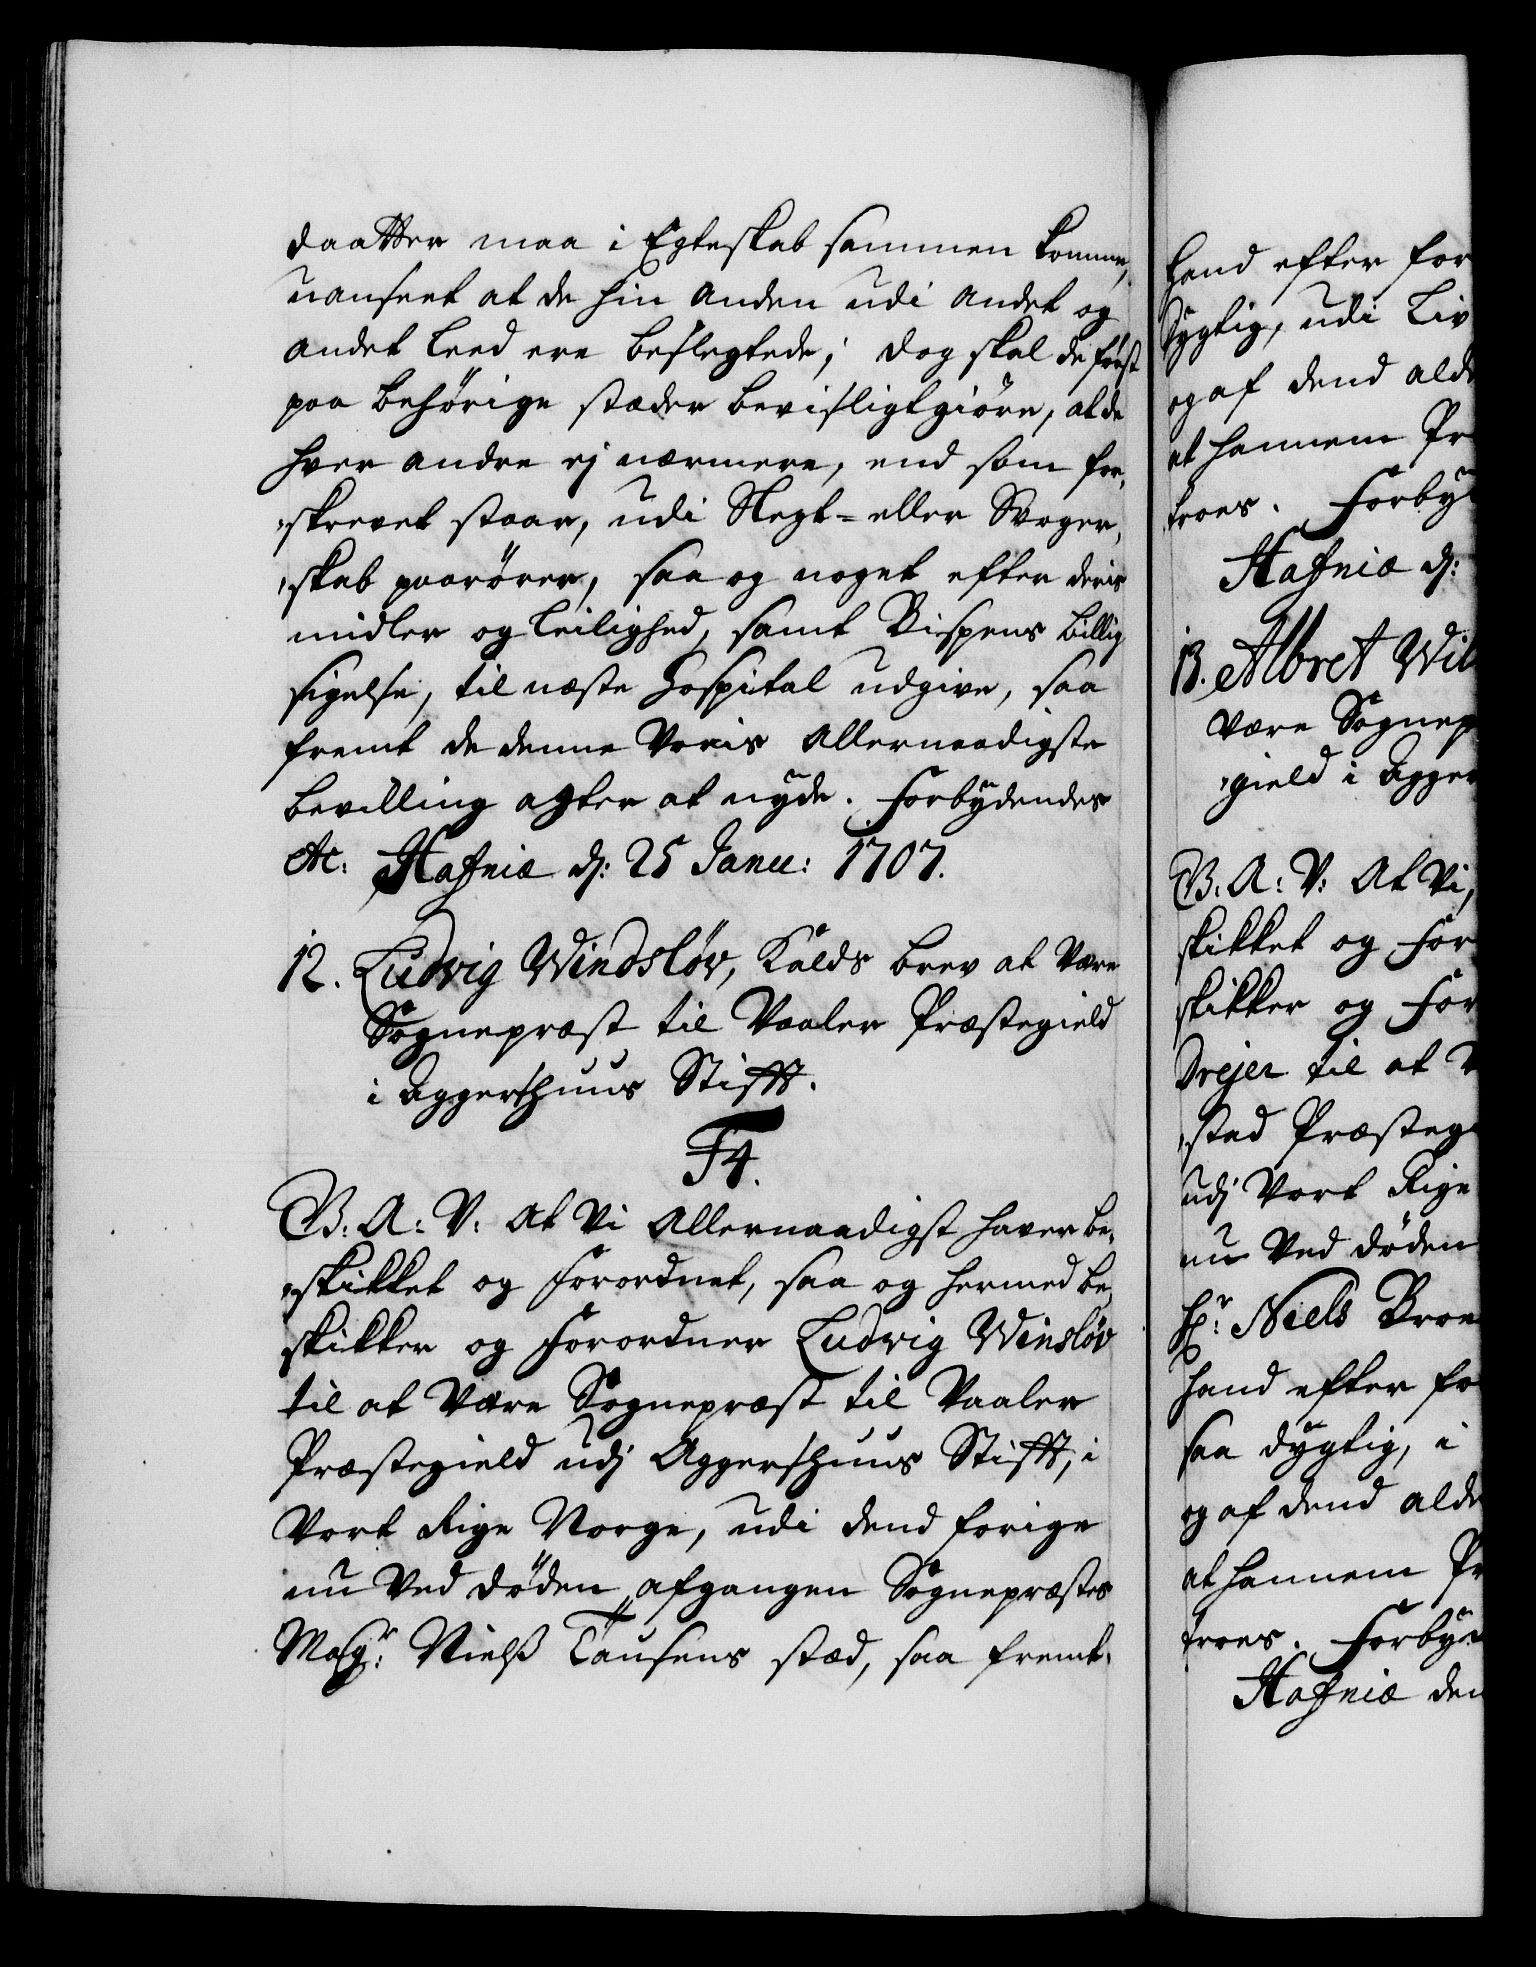 daatter maa i Egteskab sammen komme,
uanseet at de hin anden udi andet og
andet leed ere beslegtede; dog skal de først
paa behørige stæder beviisligtgiøre, at de
hver andre ej nærmere, end som for„
„skrevet staar, udi Slegt- eller Svoger„
„skab paarører, saa og noget efter deris
midler og leilighed, samt Bispens billig
sigelse, til næste Hospital udgive, saa
fremt de denne Voris allernaadigste
bevilling agter at nyde. Forbydendes
etc: Hafniæ d: 25 Janu: 1707.
12. Ludvig Windsløv, Kalds brev at være
Sognepræst til Vaaler Præstegield
i Aggershuus Stifft.
F4.
G: A: V: at Vi allernaadigst haver be„
„skikket og forordnet, saa og hermed be„
skikker og forordner Ludvig Winsløv
til at være Sognepræst til Vaaler
Præstegield udj Aggershuus Stifft, i
Vort Rige Norge, udi dend forige
nu ved døden afgangen Sognepræstes
Magr: Nielß Tausens stæd, saa fremt
hand efter for
dygtig, udi Liv
og af dend alde
at hannem Pr
troes. Forbyd
Hafniæ d:
13. Albret Wil
være Sognep
„gield i Agger
G: A: V: at Vi,
skikket og for
skikker og for
Drejer til at v
„sted Præsteg
udj Vort Rige
nu ved døden
Hr: Niels Broe
hand efter fo
saa dygtig, i
og af dend alde
at hannem Pr
troes. Forbyd
Hafniæ den